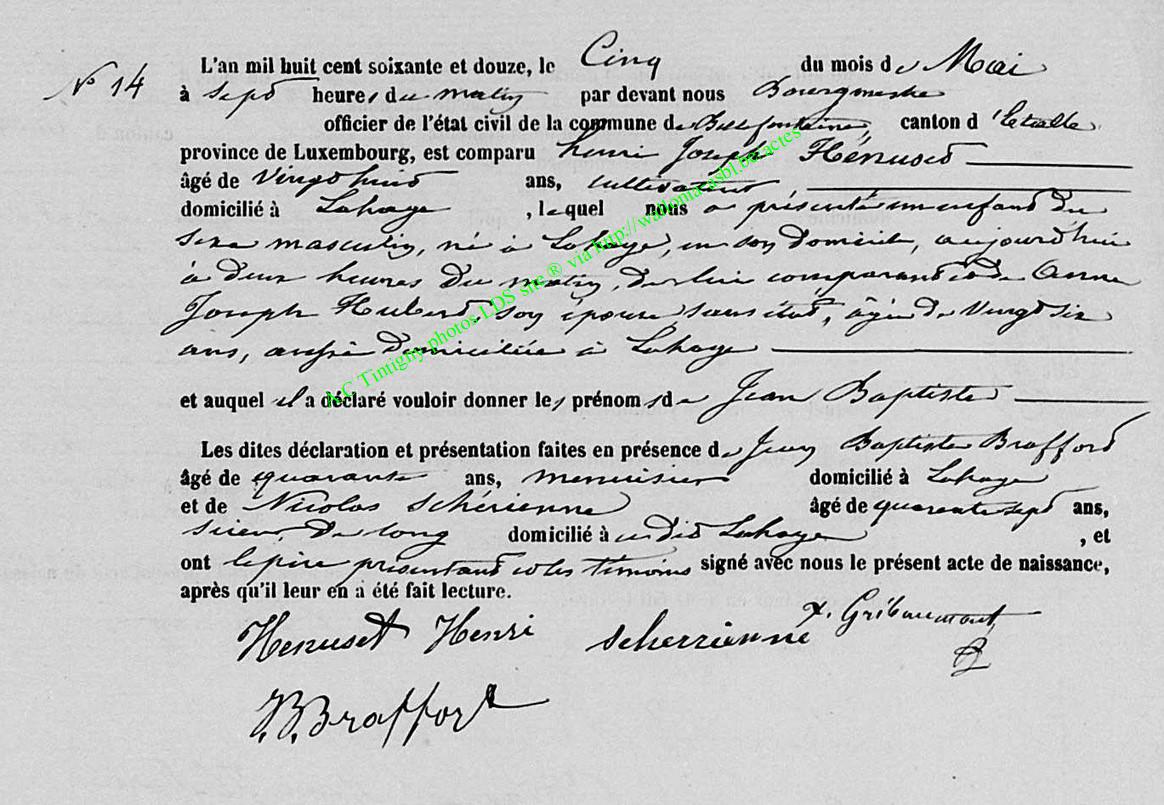 N° 14
L'an mil huit cent soixante et douze, le Cinq du mois de Mai
à sept heures du matin par devant nous Bourgmestre
officier de l'état civil de la commune de Bellefontaine, canton d'Etalle
province de Luxembourg, est comparu henri Joseph Hénuset
âgé de vingt huit ans, cultivateur
domicilié à Lahage, lequel nous a présenté un enfant du
sexe masculin, né à Lahage, en son domicile, aujourd'hui
à deux heures du matin, de lui comparant et de Anne
Joseph Hubert, son épouse sans état, âgée de vingt six
ans, aussi domiciliée à Lahage
et auquel il a déclaré vouloir donner les prénoms de Jean Baptiste
Les dites déclaration et présentation faites en présence de Jean Baptiste Braffort
âgé de quarante ans, menuisier domicilié à Lahage
et de Nicolas Schérienne âgé de quarante sept ans,
scieur de long domicilié à au dit Lahage, et
ont le père présentant et les témoins signé avec nous le présent acte de naissance,
après qu'il leur en a été fait lecture.
Henuset Henri scherrienne x. Gribaumont
J.B. Braffort
AC Tintigny photos LDS snc ® via http://wallonia-asbl.be/actes